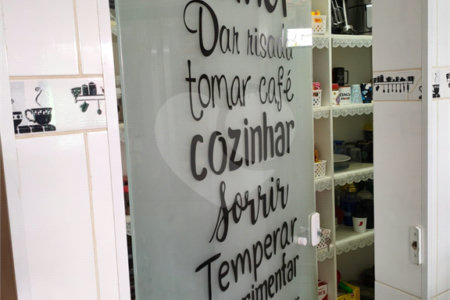 Dar risada
tomar café
cozinhar
Sorrir
Temperar